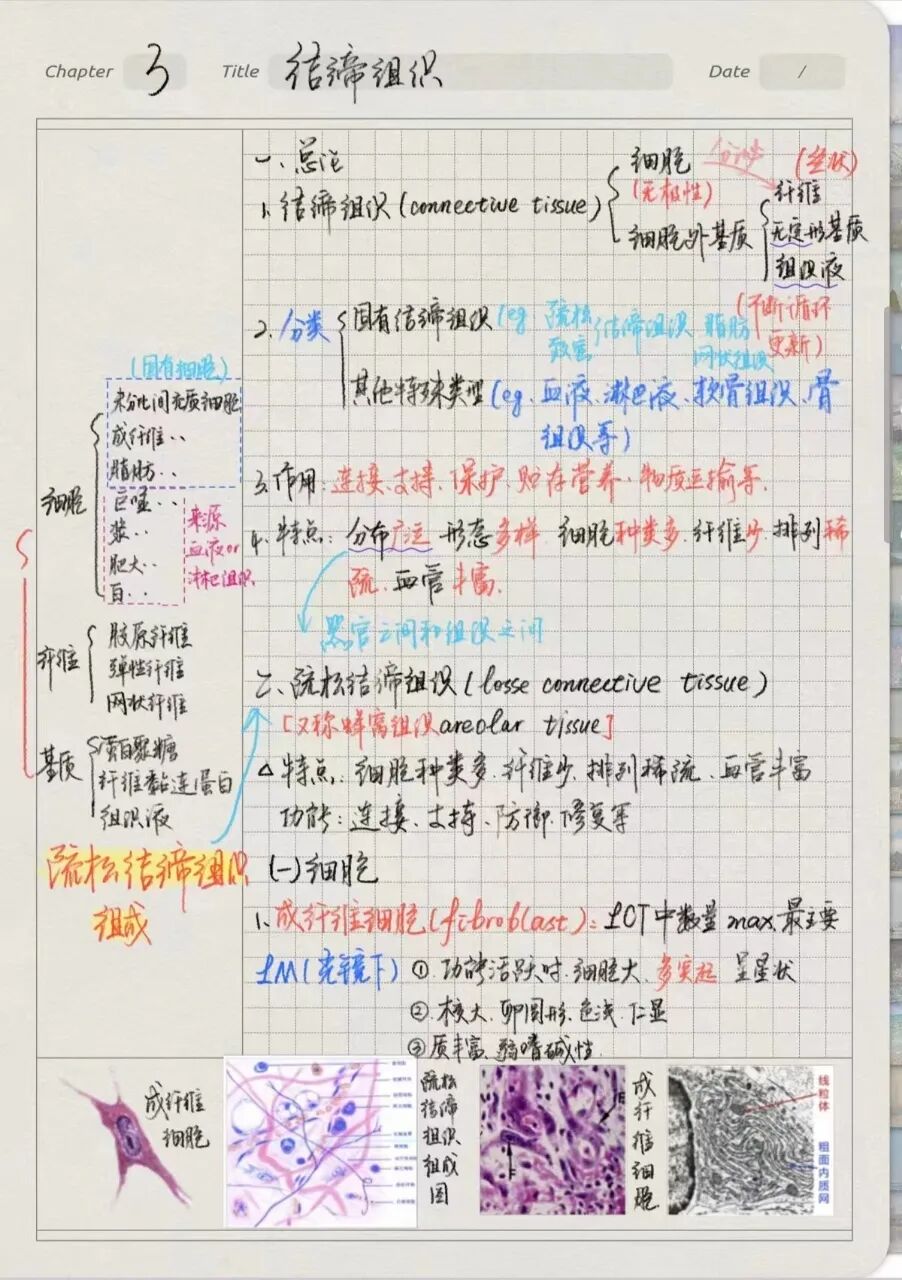 Chapter 3 Title 结缔组织 Date /
一、总论
1. 结缔组织(connective tissue)
细胞 分泌
(无极性)
细胞外基质
(丝状)
纤维
无定形基质
组织液
(不断循环更新)
2. 分类
固有结缔组织(eg 疏松 致密 结缔组织 脂肪 网状组织
其他特殊类型(eg、血液、淋巴液、软骨组织、骨
组织等)
3. 作用: 连接、支持、保护、贮存营养、物质运输等.
4. 特点: 分布广泛 形态多样 细胞种类多、纤维少、排列稀
疏、血管丰富.
器官之间和组织之间
二、疏松结缔组织(losse connective tissue)
[又称蜂窝组织areolar tissue]
△ 特点: 细胞种类多、纤维少、排列稀疏、血管丰富
功能: 连接、支持、防御、修复等
(一)细胞
1. 成纤维细胞(fibroblast): LCT中数量max、最主要
LM(光镜下) ①. 功能活跃时、细胞大、多突起 呈星状
②. 核大、卵圆形、色浅、仁显
③质丰富、弱嗜碱性.
(固有细胞)
细胞
未分化间充质细胞
成纤维··
脂肪··
巨噬··
浆··
肥大··
白··
来源
血液or
淋巴组织
纤维
胶原纤维
弹性纤维
网状纤维
基质
蛋白聚糖
纤维黏连蛋白
组织液
疏松结缔组织
组成
成纤维
细胞
疏松结缔组织组成图
F
成纤维细胞
线粒体
粗面内质网